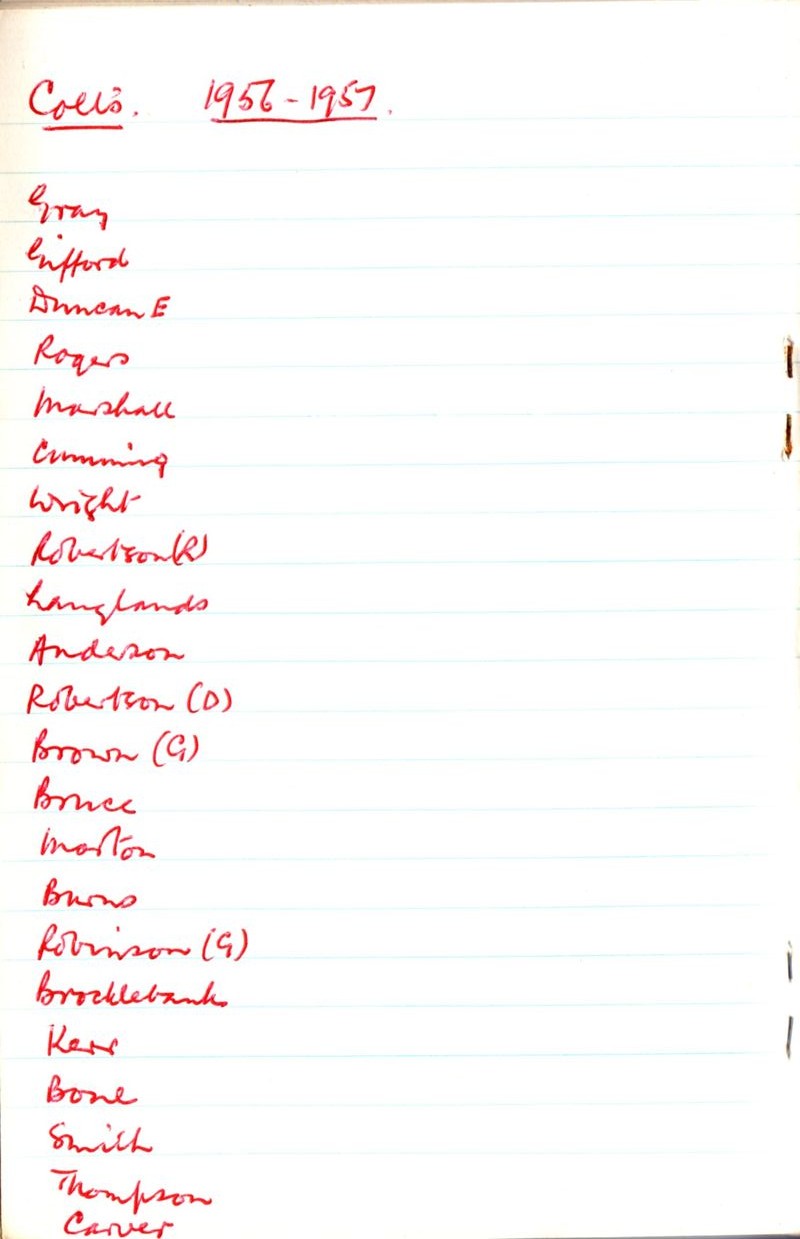 Colts. 1956-1957.
Gray
Gifford
Duncan E
Rogers
Marshall
Cumming
Wright
Robertson (R)
Langlands
Anderson
Robertson (D)
Brown (G)
Bruce
Morton
Burns
Robinson (G)
Brocklebank
Kerr
Bone
Smith
Thompson
Carver